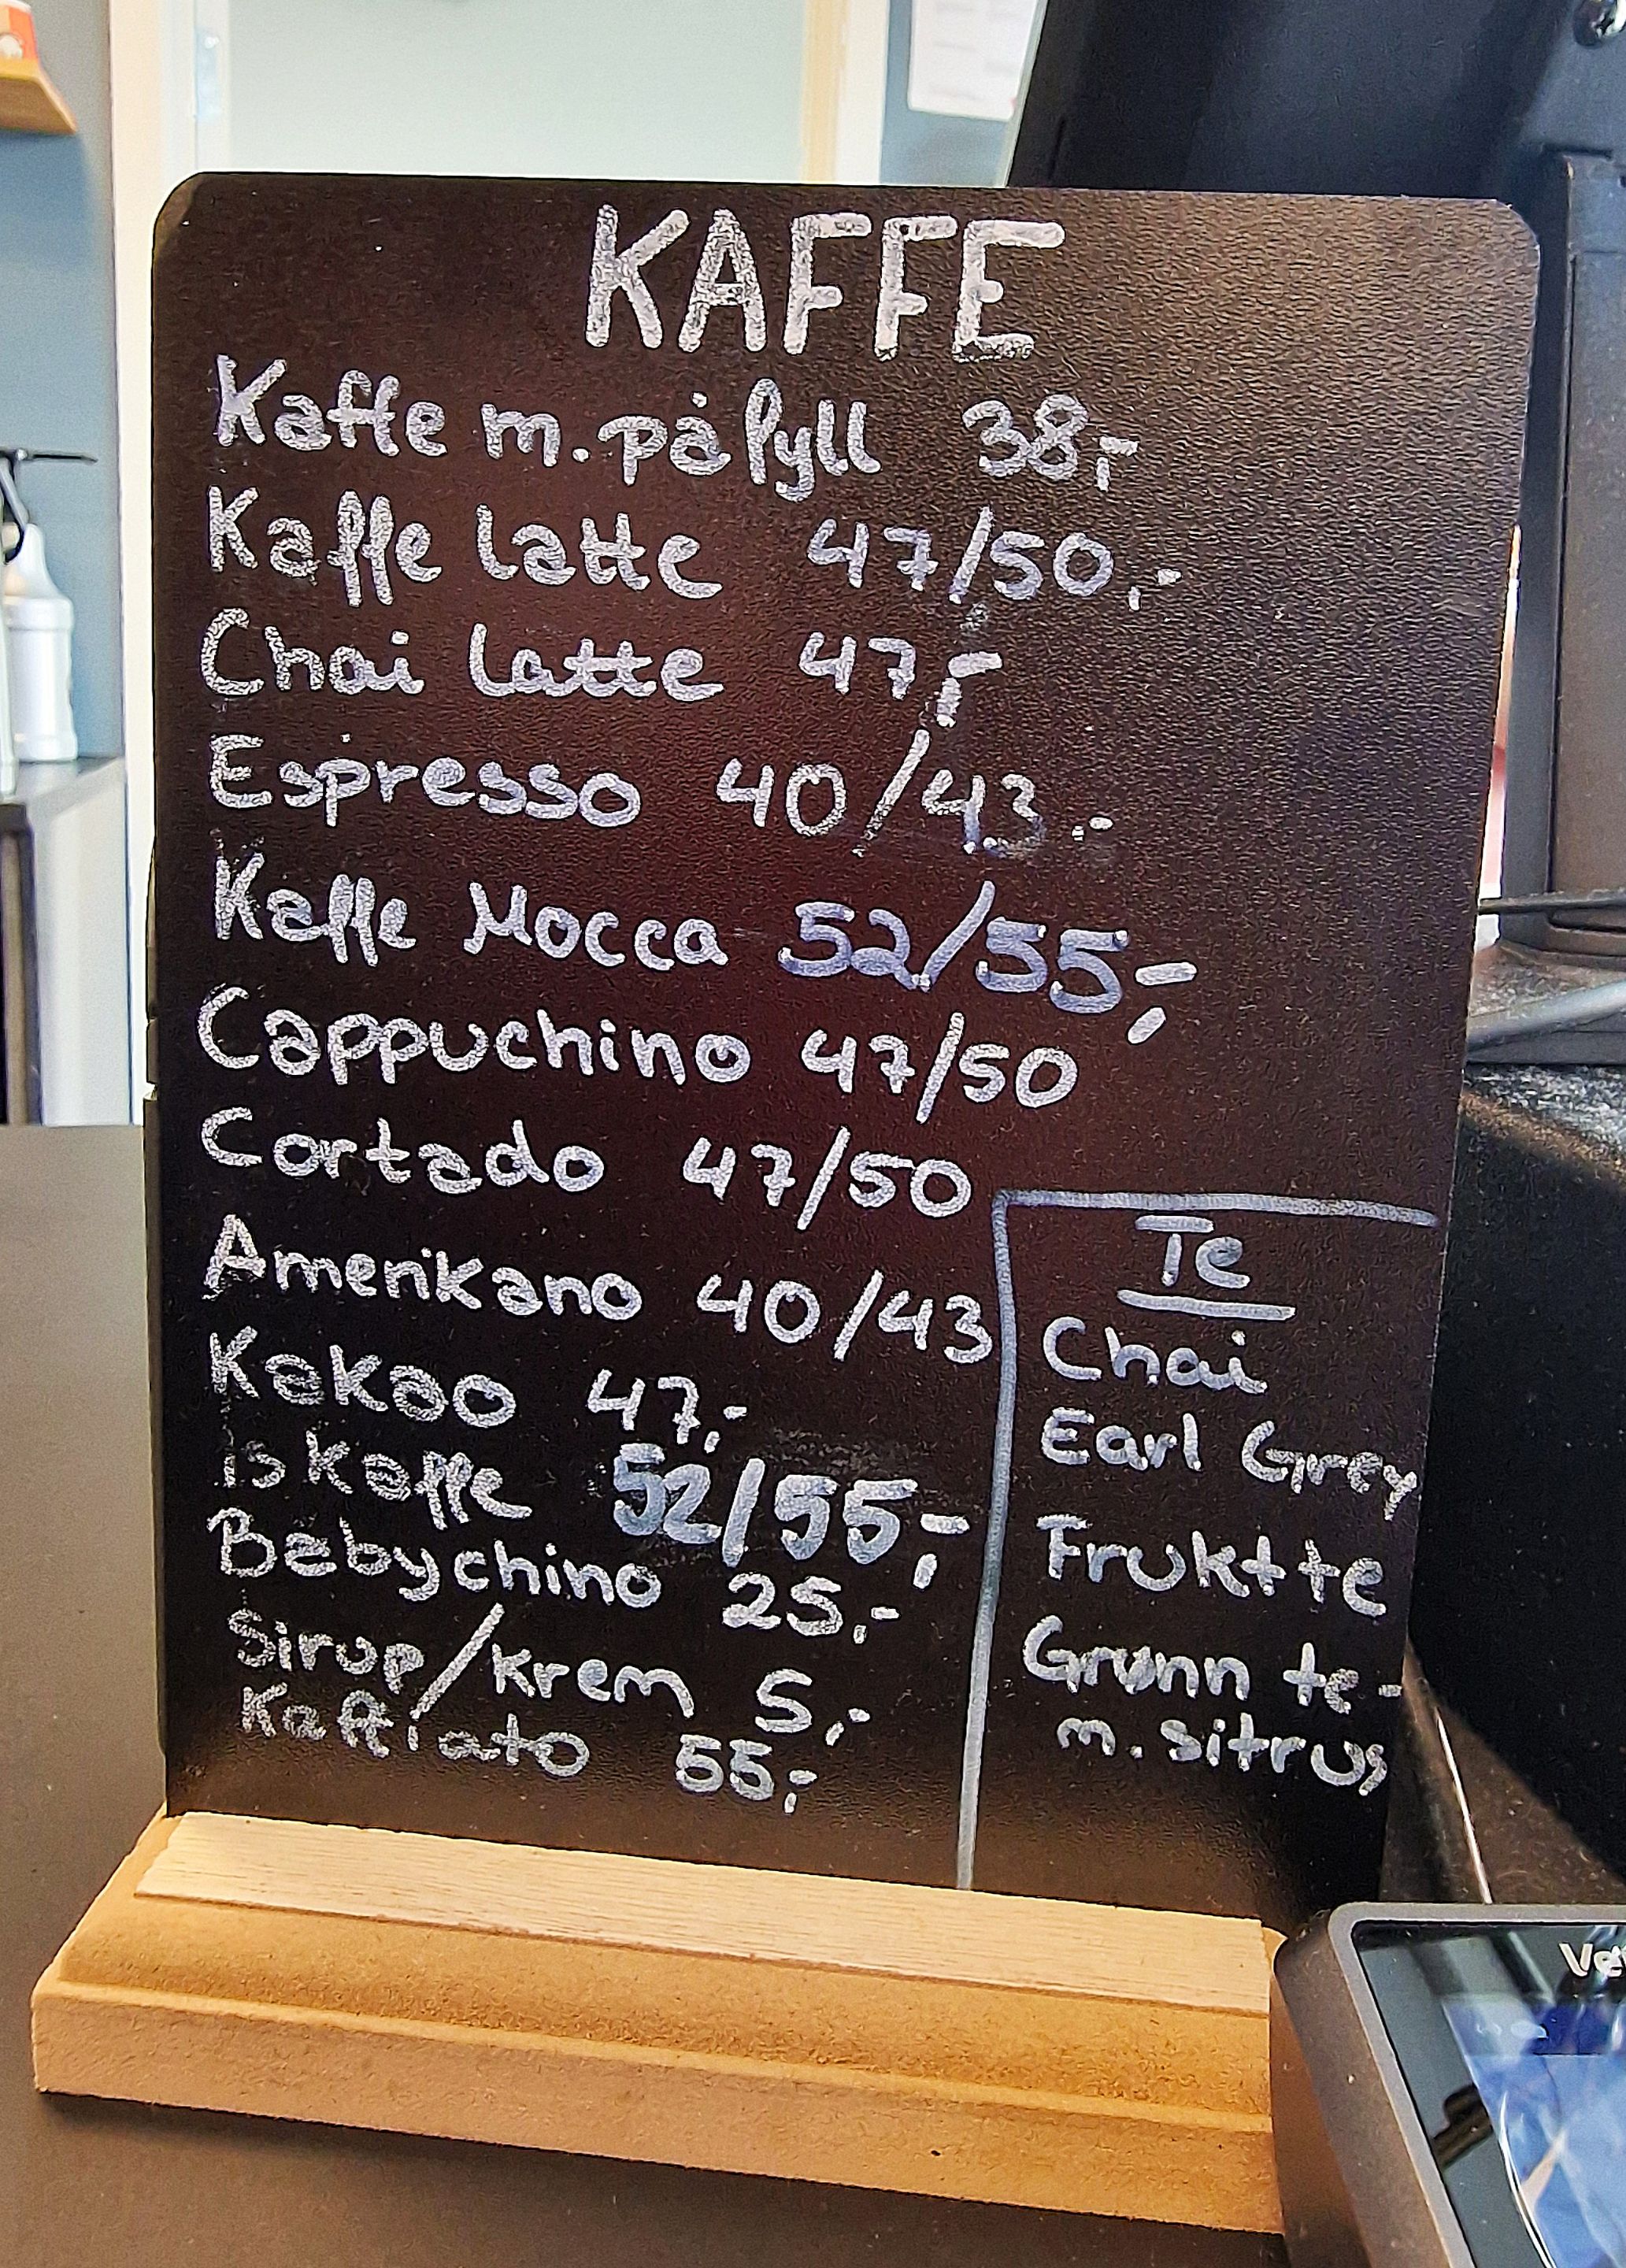 KAFFE
Kaffe m. påfyll 38,-
Kaffe latte 47/50,-
Chai latte 47,-
Espresso 40/43,-
Kaffe Mocca 52/55,-
Cappuchino 47/50
Cortado 47/50
Amerikano 40/43
Kakao 47,-
Iskaffe 52/55,-
Babychino 25,-
Sirup/krem 5,-
Kaffiato 55,-
Te
Chai
Earl Grey
Frukt te
Grønn te-
m. sitrus